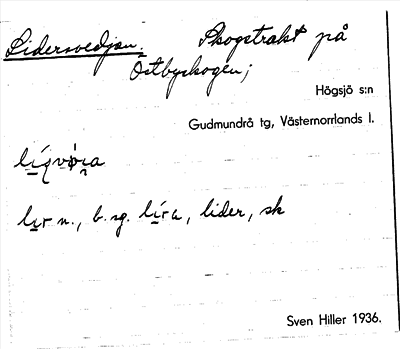 Lidersvedjan. Skogstrakt på
Östbyskogen;
Högsjö s:n
Gudmundrå tg, Västernorrlands l.
lır n., b. sg. lı́ra, lider, sk
Sven Hiller 1936.